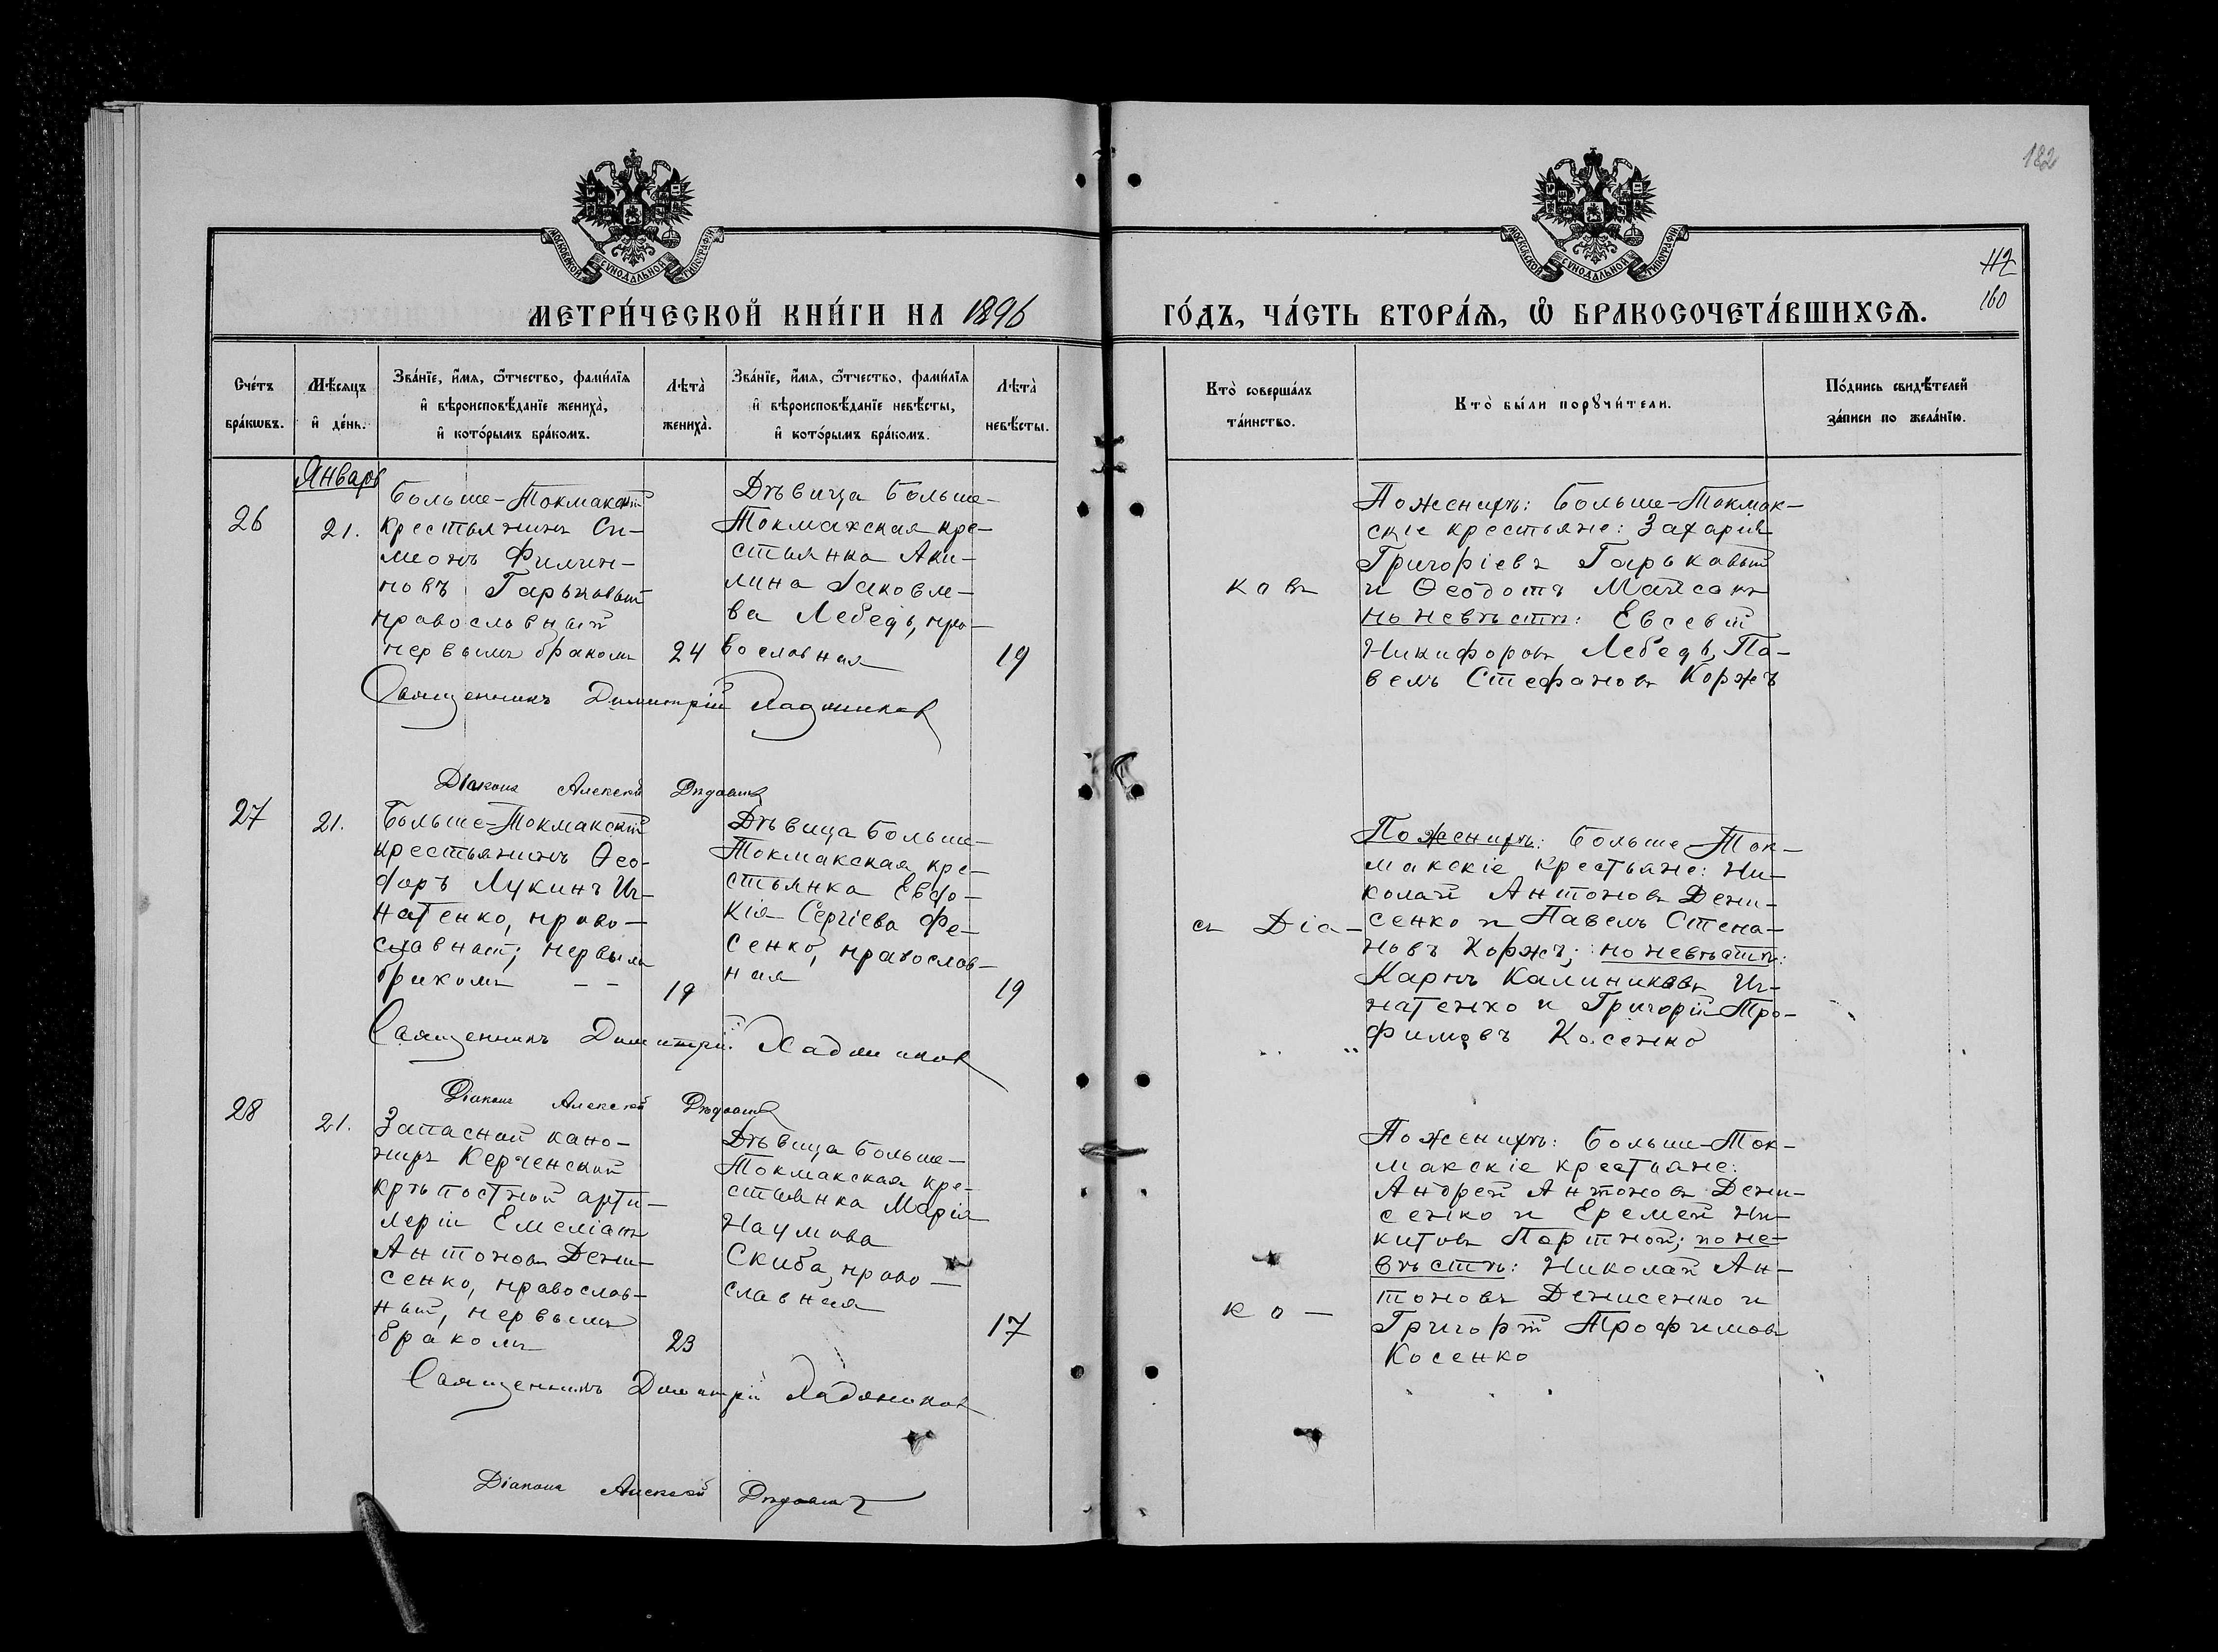 182
МОСКОВСКОЙ СУНОДАЛЬНОЙ ТИПОГРАФІИ
МОСКОВСКОЙ СУНОДАЛЬНОЙ ТИПОГРАФІИ
112
160
МЕТРИ́ЧЕСКОЙ КНИ́ГИ НА 1896
ГО́ДЪ, ЧА́СТЬ ВТОРА́Ѧ, Ѡ҆ БРАКОСОЧЕТА́ВШИХСѦ.
Счетъ бра́кѡвъ.
Мѣсяцъ и҆ де́нь.
Зва́нїе, и҆́мѧ, ѻ҆́тчество, фами́лїѧ
и҆ вѣроисповѣ́данїе жениха̀,
и҆ кото́рымъ бра́комъ.
Лѣта̀ жениха̀.
Зва́нїе, и҆́мѧ, ѻ҆́тчество, фами́лїѧ
и҆ вѣроисповѣ́данїе невѣ́сты,
и҆ кото́рымъ бра́комъ.
Лѣта̀ невѣ́сты.
Кто̀ соверша́лъ та́инство.
Кто̀ бы́ли порꙋчи́тели.
По́дпись свидѣ́телей
за́писи по жела́нїю.
Январь
26
21.
Больше-Токмакскій
крестьянинъ Си-
меонъ Филип-
повъ Гарькавый
православный
первымъ бракомъ
24
Дѣвица Больше-
Токмакская кре-
стьянка Аки-
лина Іаковле-
ва Лебедь, пра-
вославная
19
Священникъ Димитрій Ладжиков
Діаконъ Алексей
ковъ
По женихѣ: Больше-Токмак-
скіе крестьяне: Захарія
Григоріевъ Гарькавый
и Ѳеодотъ Майсакъ
по невѣстѣ: Евсевій
Никифоровъ Лебедь, Па-
велъ Стефановъ Коржъ
27
21.
Больше-Токмакскій
крестьянинъ Ѳео-
доръ Лукинъ Иг-
натенко, право-
славный; первымъ
бракомъ - -
19
Дѣвица Больше-
Токмакская кре-
стьянка Евдо-
кія Сергіева Фе-
сенко, православ-
ная
19
Священникъ Димитрій
Діаконъ Алексей
съ Діа-
По женихѣ: Больше-Ток-
макскіе крестьяне: Ни-
колай Антоновъ Дени-
сенко и Павелъ Степа-
новъ Коржъ; по невѣстѣ:
Карпъ Калиниковъ Иг-
натенко и Григорій Тро-
фимовъ Косенко
28
21.
Запасной кано-
ниръ Керченской
крѣпостной арти-
леріи Емеліанъ
Антоновъ Дени-
сенко, православ-
ный, первымъ
бракомъ
23
Дѣвица Больше-
Токмакская кре-
стьянка Марія
Наумова
Скиба, право-
славная
17
Священникъ Димитрій
Діаконъ Алексей
ко-
По женихѣ: Больше-Ток-
макскіе крестьяне:
Андрей Антоновъ Дени-
сенко и Еремей Ни-
китовъ Портной; по не-
вѣстѣ: Николай Ан-
тоновъ Денисенко и
Григорій Трофимовъ
Косенко